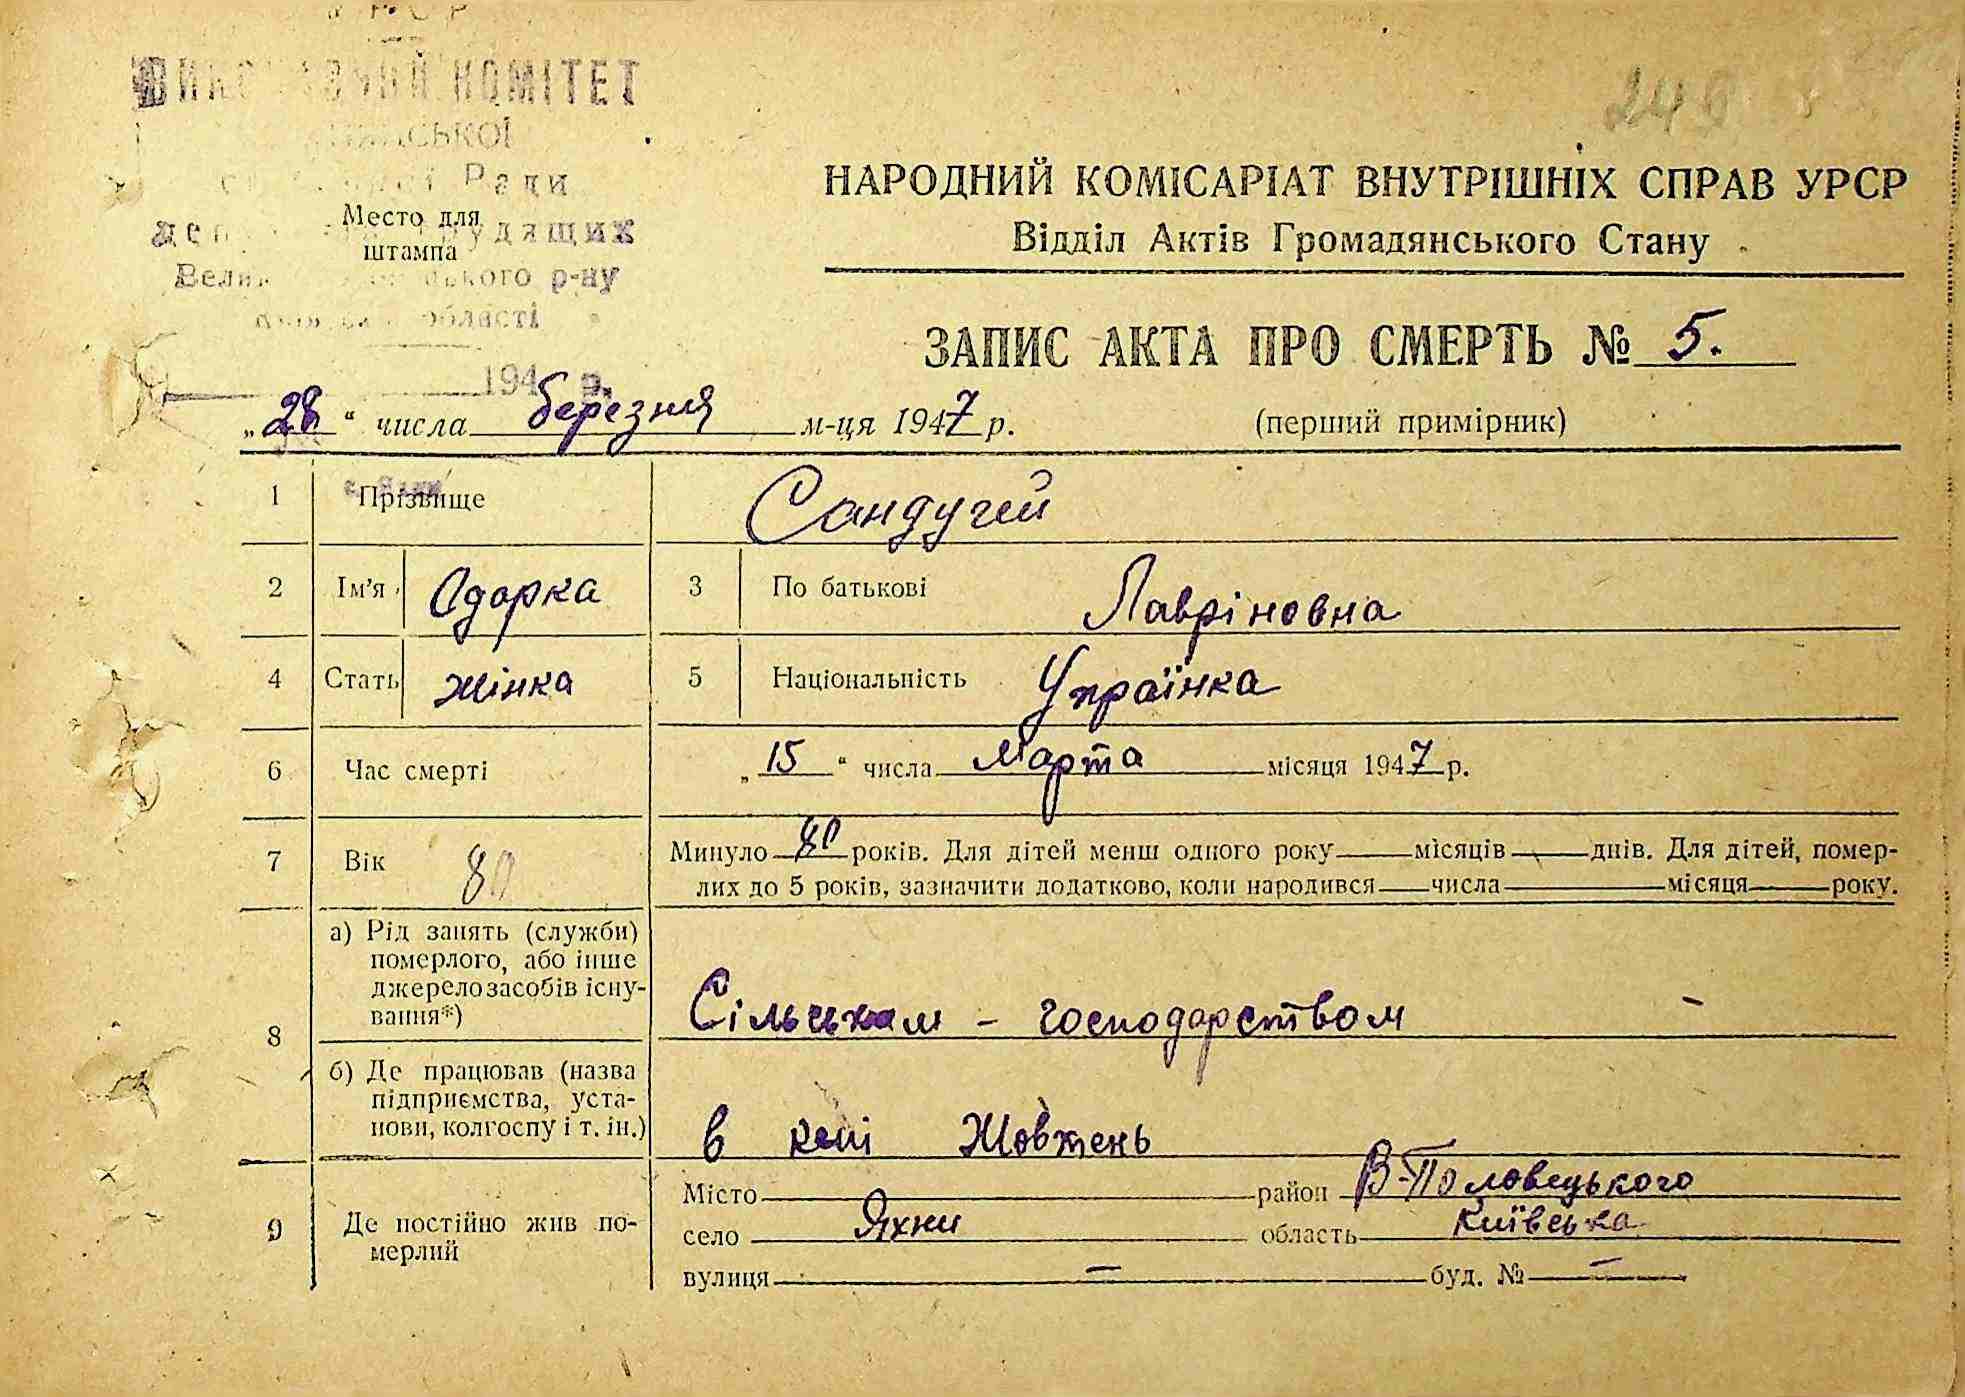 КОМІТЕТ
Ради
Место для
штампа
р-ну
області
194 р.
240
НАРОДНИЙ КОМІСАРІАТ ВНУТРІШНІХ СПРАВ УРСР
Відділ Актів Громадянського Стану
ЗАПИС АКТА ПРО СМЕРТЬ № 5.
„28“ числа березня м-ця 1947 р. (перший примірник)
1 Прізвище Сандугей
2 Ім'я Одарка 3 По батькові Лавріновна
4 Стать жінка 5 Національність Українка
6 Час смерті „15“ числа Марта місяця 1947 р.
7 Вік 80 Минуло 80 років. Для дітей менш одного року місяців днів. Для дітей, помер-
лих до 5 років, зазначити додатково, коли народився числа місяця року.
8 а) Рід занять (служби)
померлого, або інше
джерело засобів існу-
вання*)
Сільськам - господарством -
б) Де працював (назва
підприємства, уста-
нови, колгоспу і т. ін.)
в Жовтень
9 Де постійно жив по-
мерлий
Місто район В-Половецького
село Яхни область Київська
вулиця — буд. № —